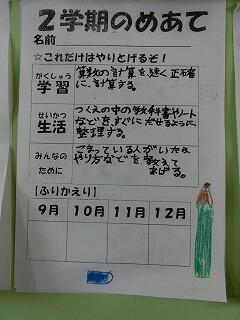 2学期のめあて
名前
☆これだけはやりとげるぞ！
がくしゅう
学習
算数の計算を速く正石雀
に、計算する。
せいかつ
生活
つくえの中の教科書やノート
などを、すぐにだせるように
整理する。
みんなの
ために
こまっている人がいたら
やり方などを教えて
あげる。
【ふりかえり】
9月 10月 11月 12月